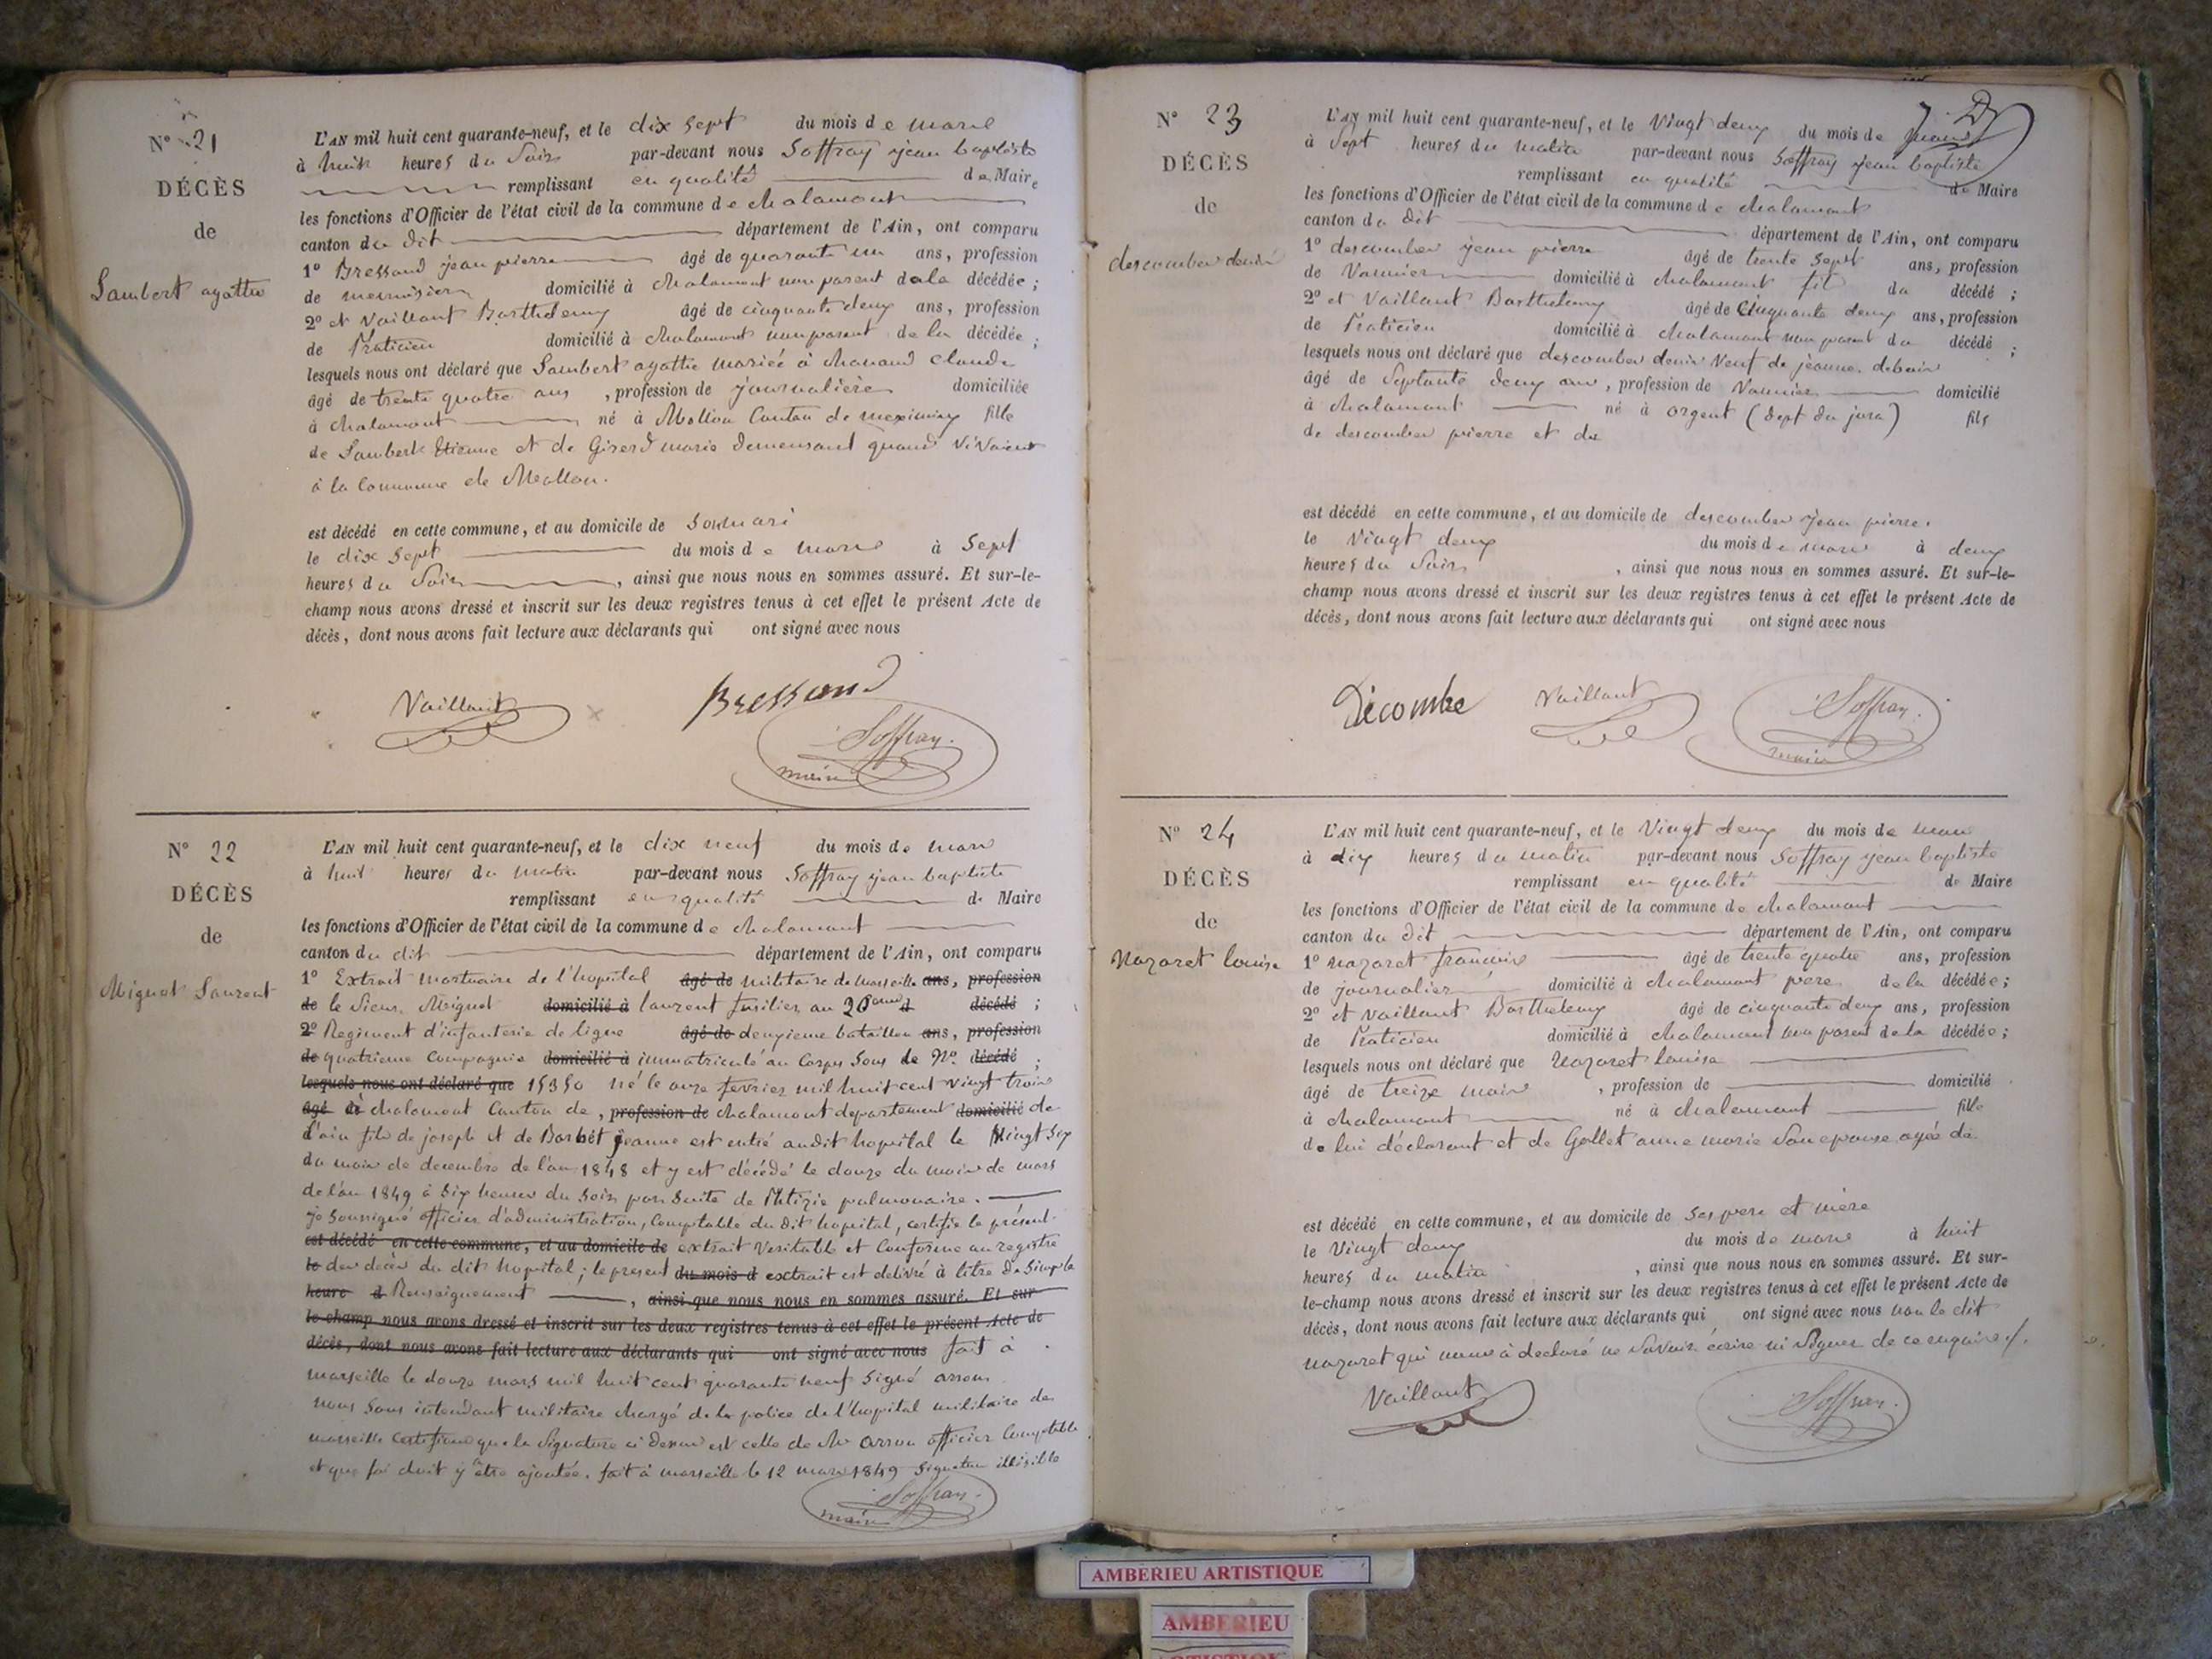 N° 21
DÉCÈS
de
Lambert agathe
L'AN mil huit cent quarante-neuf, et le dix sept du mois de mars
à huit heures du Soir par-devant nous Soffray jean baptiste
remplissant en qualité de Maire
les fonctions d'Officier de l'état civil de la commune de chalamont
canton du dit département de l'Ain, ont comparu
1° Bressand jean pierre âgé de quarante un ans, profession
de menuisier domicilié à chalamont non parent de la décédée ;
2° et Vaillant Barthelemy âgé de cinquante deux ans, profession
de Praticien domicilié à chalamont non parent de la décédée ;
lesquels nous ont déclaré que Lambert agathe mariée à chanand Claude
âgé de trente quatre ans , profession de journalière domiciliée
à chalamont né à Mollon Canton de meximieux fille
de Lambert Etienne et de Girerd marie demeurant quand vivaient
à la Commune de Mollon.
est décédé en cette commune, et au domicile de Son mari
le dix sept du mois de mars à Sept
heures du Soir , ainsi que nous nous en sommes assuré. Et sur-le-
champ nous avons dressé et inscrit sur les deux registres tenus à cet effet le présent Acte de
décès, dont nous avons fait lecture aux déclarants qui ont signé avec nous
Vaillant Bressand
Soffray
maire
N° 22
DÉCÈS
de
Mignot Laurent
L'AN mil huit cent quarante-neuf, et le dix neuf du mois de mars
à huit heures du matin par-devant nous Soffray jean baptiste
remplissant en qualité de Maire
les fonctions d'Officier de l'état civil de la commune de chalamont
canton du dit département de l'Ain, ont comparu
1° Extrait mortuaire de l'hopital âgé de militaire de Marseille ans, profession
de le Sieur Mignot domicilié à laurent fusilier au 20eme d décédé ;
2° Regiment d'infanterie de ligne âgé de deuxieme bataillon ans, profession
de quatrieme Compagnie domicilié à immatriculé au Corps Sous le N° décédé ;
lesquels nous ont déclaré que 15350 né le onze fevrier mil huit cent vingt trois
âgé de à chalamont Canton de , profession de chalamont departement domicilié de
l'ain fils de joseph et de Barbét jeanne est entré audit hopital le Vingt six
du mois de decembre de l'an 1848 et y est décédé le douze du mois de mars
de l'an 1849 à six heures du Soir par Suite de Phtizie pulmonaire.
je Soussigné officier d'administration, Comptable du dit hopital, certifie le présent
est décédé en cette commune, et au domicile de extrait Veritable et Conforme au registre
le des décès du dit hopital ; le present du mois d exctrait est delivré à titre de Simple
heure d Renseignement , ainsi que nous nous en sommes assuré. Et sur
le-champ nous avons dressé et inscrit sur les deux registres tenus à cet effet le présent Acte de
décès, dont nous avons fait lecture aux déclarants qui ont signé avec nous fait à
marseille le douze mars mil huit cent quarante neuf Signé arrou
nous Sous intendant militaire chargé de la police de l'hopital militaire de
marseille Certifions que la Signature ci dessus est celle de Mr arrou officier Comptable
et que foi doit y être ajoutée. fait à marseille le 12 mars 1849 Signature illisible
Soffray
maire
N° 23
DÉCÈS
de
descombes denis
L'AN mil huit cent quarante-neuf, et le Vingt deux du mois de mars
à Sept heures du matin par-devant nous Soffray jean baptiste
remplissant en qualité de Maire
les fonctions d'Officier de l'état civil de la commune de chalamont
canton du dit département de l'Ain, ont comparu
1° descombes jean pierre âgé de trente sept ans, profession
de Vannier domicilié à chalamont fils du décédé ;
2° et Vaillant Barthelemy âgé de Cinquante deux ans, profession
de Praticien domicilié à chalamont non parent du décédé ;
lesquels nous ont déclaré que descombes denis Veuf de jeanne
âgé de Septante deux ans , profession de Vannier domicilié
à chalamont né à orgent (dept du jura) fils
de descombes pierre et de
est décédé en cette commune, et au domicile de descombes jean pierre.
le Vingt deux du mois de mars à deux
heures du Soir , ainsi que nous nous en sommes assuré. Et sur-le-
champ nous avons dressé et inscrit sur les deux registres tenus à cet effet le présent Acte de
décès, dont nous avons fait lecture aux déclarants qui ont signé avec nous
Décombe Vaillant Soffray
maire
N° 24
DÉCÈS
de
Nazaret louise
L'AN mil huit cent quarante-neuf, et le Vingt deux du mois de mars
à dix heures du matin par-devant nous Soffray jean baptiste
remplissant en qualité de Maire
les fonctions d'Officier de l'état civil de la commune de chalamont
canton du dit département de l'Ain, ont comparu
1° Nazaret françois âgé de trente quatre ans, profession
de journalier domicilié à chalamont pere de la décédée ;
2° et Vaillant Barthelemy âgé de cinquante deux ans, profession
de Praticien domicilié à chalamont non parent de la décédée ;
lesquels nous ont déclaré que Nazaret louise
âgé de treize mois , profession de domicilié
à chalamont né à chalamont fille
de lui déclarant et de Gollet anne marie Son epouse agée de
est décédé en cette commune, et au domicile de Ses pere et mère
le Vingt deux du mois de mars à huit
heures du matin , ainsi que nous nous en sommes assuré. Et sur-
le-champ nous avons dressé et inscrit sur les deux registres tenus à cet effet le présent Acte de
décès, dont nous avons fait lecture aux déclarants qui ont signé avec nous non le dit
nazaret qui nous à declaré ne Savoir écrire ni Signer de ce requis
Vaillant Soffray
AMBERIEU ARTISTIQUE
AMBERIEU
ARTISTIQUE